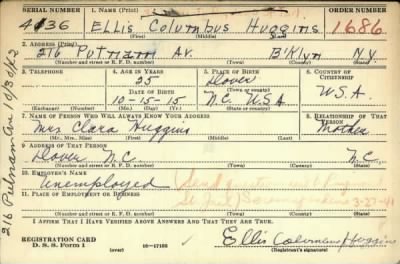 SERIAL NUMBER 1. NAME (Print) ORDER NUMBER
4036 Ellis Columbus Huggins 1686
(First) (Middle) (Last)
2. ADDRESS (Print)
216 Putnam Av. B'klyn N.Y.
(Number and street or R. F. D. number) (Town) (County) (State)
3. TELEPHONE 4. AGE IN YEARS 5. PLACE OF BIRTH 6. COUNTRY OF CITIZENSHIP
25 Dover
DATE OF BIRTH (Town or county)
10-15-15 N.C. USA U.S.A.
(Exchange) (Number) (Mo.) (Day) (Yr.) (State or country)
7. NAME OF PERSON WHO WILL ALWAYS KNOW YOUR ADDRESS 8. RELATIONSHIP OF THAT PERSON
Mrs Clara Huggins Mother
(Mr., Mrs., Miss) (First) (Middle) (Last)
9. ADDRESS OF THAT PERSON
Dover N.C. N.C.
(Number and street or R. F. D. number) (Town) (County) (State)
10. EMPLOYER'S NAME
Unemployed
11. PLACE OF EMPLOYMENT OR BUSINESS
3-27-41
(Number and street or R. F. D. number) (Town) (County) (State)
I AFFIRM THAT I HAVE VERIFIED ABOVE ANSWERS AND THAT THEY ARE TRUE.
REGISTRATION CARD
D. S. S. Form 1 (over) 16-17105
Ellis Huggins
(Registrant's signature)
216 Putnam Ave